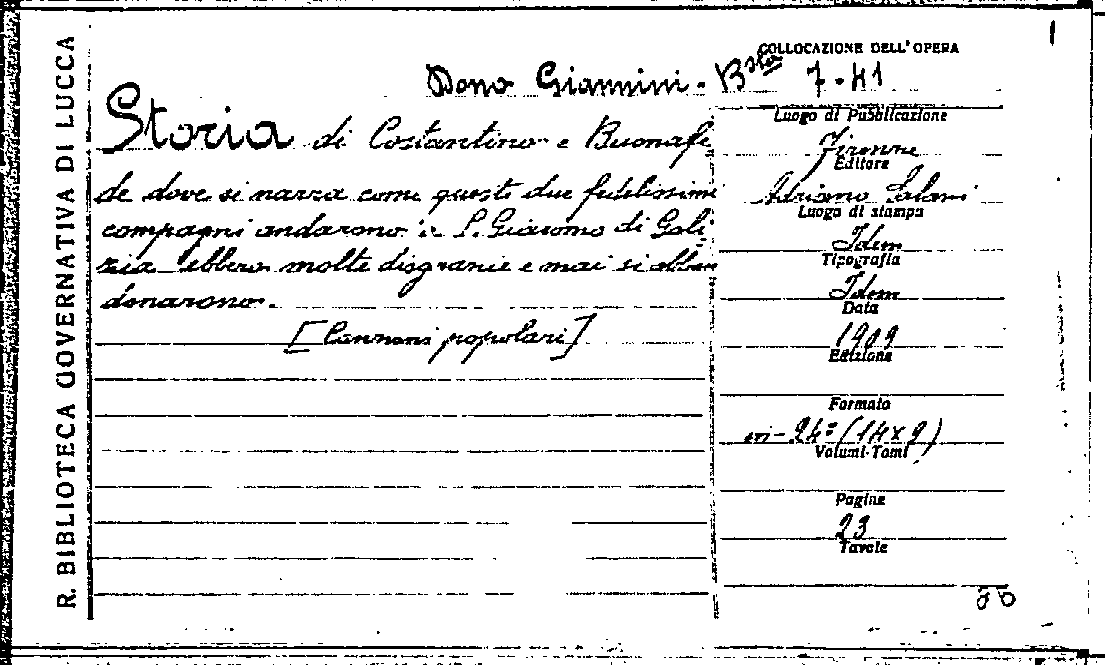 R. BIBLIOTECA GOVERNATIVA DI LUCCA
1
COLLOCAZIONE DELL'OPERA
Dono Giannini - Bsta 7-41
Storia di Costantino e Buonafe
de dove si narra come questi due fidelissimi
compagni andarono a S. Giacomo di Gali
zia ebbero molte disgrazie e mai si abban
donarono.
[Canzoni popolari]
Luogo di Pubblicazione
Firenze
Editore
Adriano Salani
Luogo di stampa
Idem
Tipografia
Idem
Data
1909
Edizione
Formato
in-24° (14x9)
Volumi-Tomi
Pagine
23
Tavole